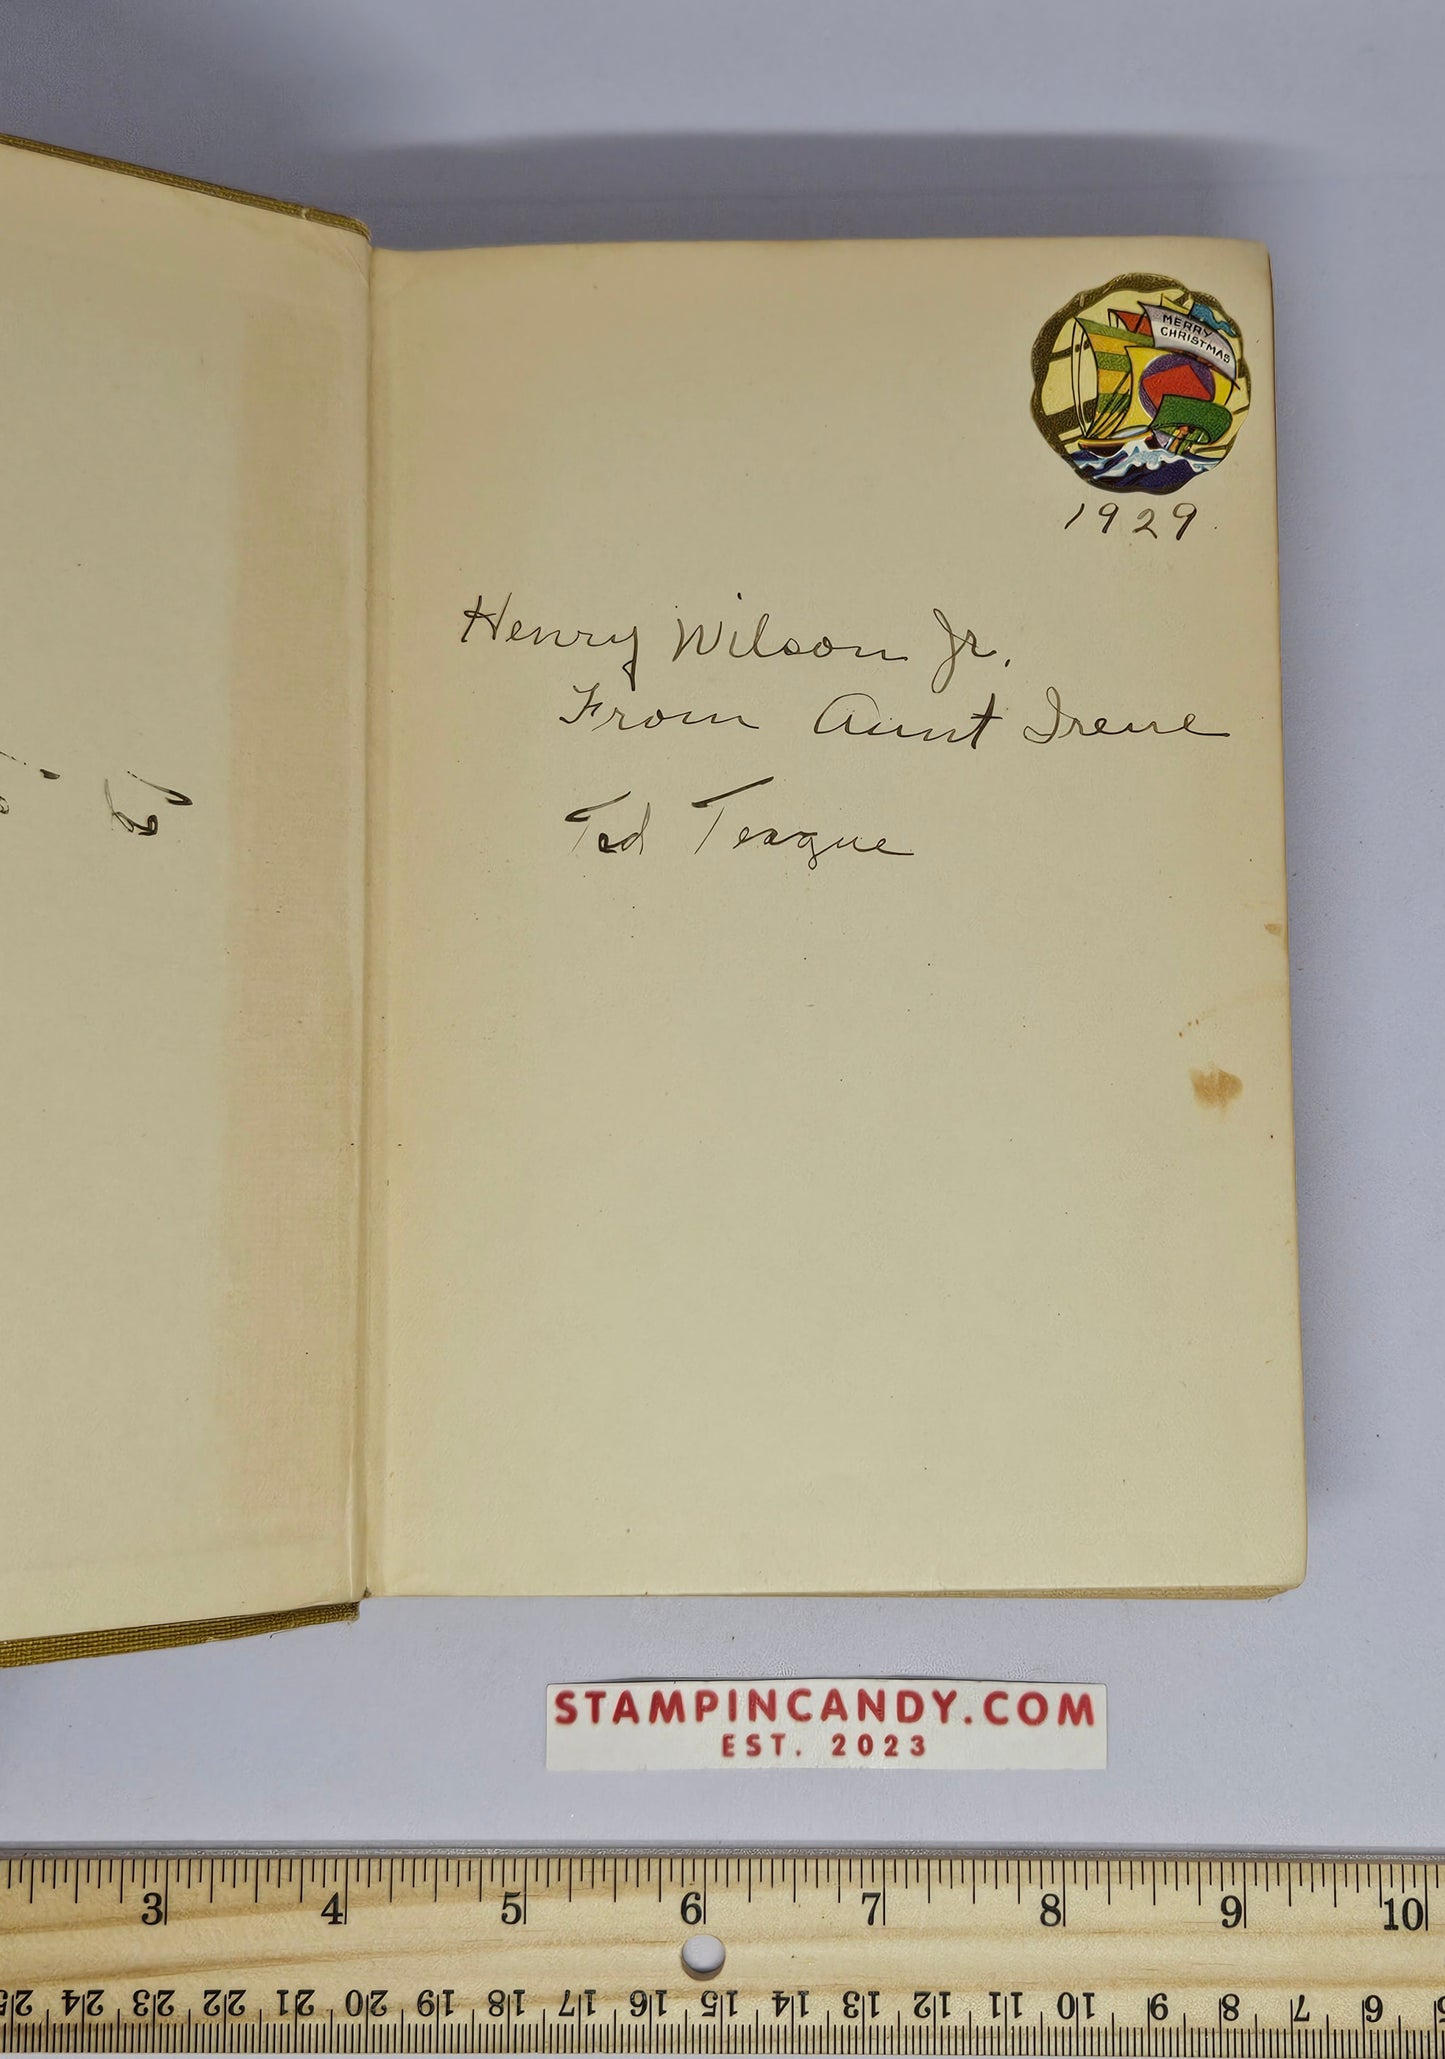 MERRY
CHRISTMAS
1929
Henry Wilson Jr.
From Aunt Irene
Ted Teague
STAMPINCANDY.COM
EST. 2023
3 4 5 6 7 8 9 10
25 24 23 22 21 20 19 18 17 16 15 14 13 12 11 10 9 8 7 6